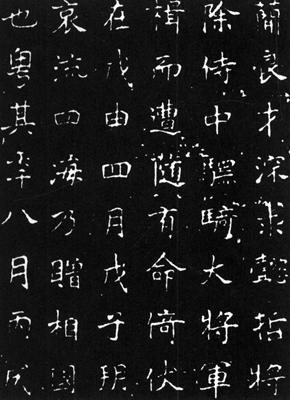 簡良才深求懿哲將
除侍中驃騎大將軍
而遭随有命倚伏
在戊申四月戊子朔
哀流四海乃贈相國
也粤其年八月丙戌